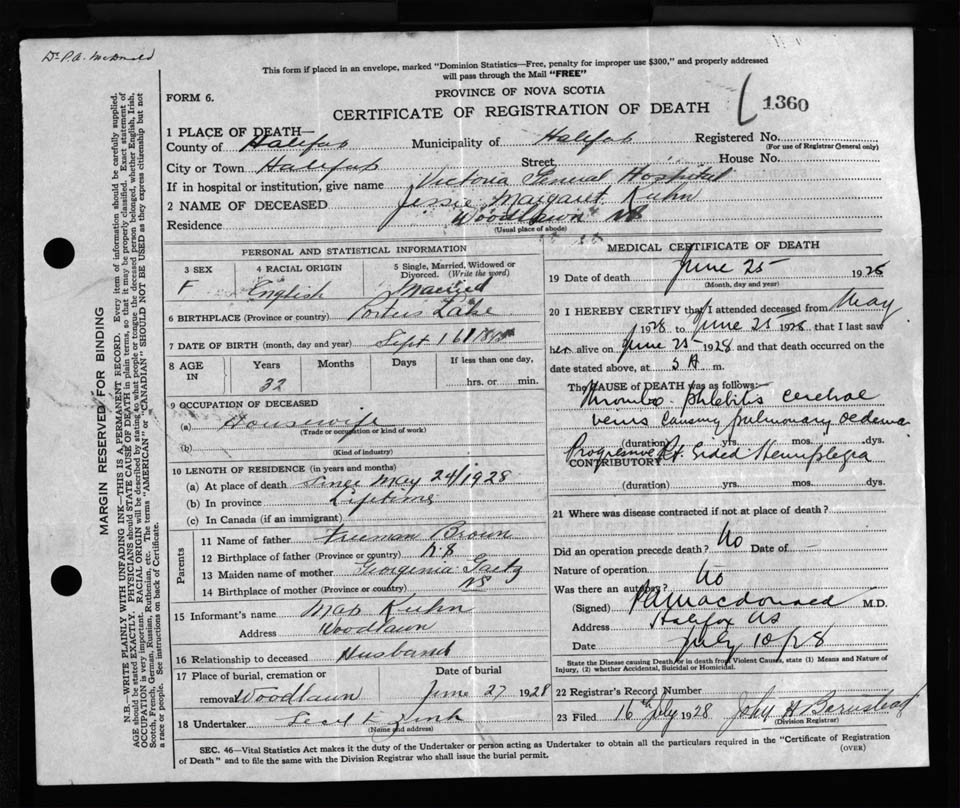 Dr P.A. McDonald
This form if placed in an envelope, marked "Dominion Statistics—Free, penalty for improper use $300," and properly addressed
will pass through the Mail "FREE"
FORM 6.
PROVINCE OF NOVA SCOTIA
CERTIFICATE OF REGISTRATION OF DEATH
1360
MARGIN RESERVED FOR BINDING
N.B.—WRITE PLAINLY WITH UNFADING INK—THIS IS A PERMANENT RECORD. Every item of information should be carefully supplied.
AGE should be stated EXACTLY. PHYSICIANS should STATE CAUSE OF DEATH in plain terms, so that it may be properly classified. Exact statement of
OCCUPATION is very important. RACIAL ORIGIN will be described by stating to what people or tongue the deceased person belonged, whether English, Irish,
Scotch, French, German, Russian, Ruthenian, etc. The terms "AMERICAN" or "CANADIAN" SHOULD NOT BE USED as they express citizenship but not
a race or people. See instructions on back of Certificate.
1 PLACE OF DEATH—
County of Halifax Municipality of Halifax Registered No.
(For use of Registrar General only)
City or Town Halifax Street, House No.
If in hospital or institution, give name Victoria General Hospital
2 NAME OF DECEASED Jessie Margaret Kuhn
Residence Woodlawn NS
(Usual place of abode)
PERSONAL AND STATISTICAL INFORMATION
3 SEX
F
4 RACIAL ORIGIN
English
5 Single, Married, Widowed or
Divorced. (Write the word)
Married
6 BIRTHPLACE (Province or country) Porters Lake
7 DATE OF BIRTH (month, day and year) Sept 16 1895
8 AGE IN
Years
32
Months
Days
If less than one day,
hrs. or min.
9 OCCUPATION OF DECEASED
(a) Housewife
(Trade or occupation or kind of work)
(b)
(Kind of industry)
10 LENGTH OF RESIDENCE (in years and months)
(a) At place of death Since May 24/1928
(b) In province Lifetime
(c) In Canada (if an immigrant)
Parents
11 Name of father Freeman Brown
12 Birthplace of father (Province or country) N.S
13 Maiden name of mother Georgenia Gaetz
14 Birthplace of mother (Province or country) NS
15 Informant's name Kuhn
Address Woodlawn
16 Relationship to deceased Husband
17 Place of burial, cremation or
removal Woodlawn
Date of burial
June 27 1928
18 Undertaker Zink
(Name and address)
MEDICAL CERTIFICATE OF DEATH
19 Date of death June 25 1928
(Month, day and year)
20 I HEREBY CERTIFY that I attended deceased from May
1928 to June 25 1928, that I last saw
her alive on June 25 1928 and that death occurred on the
date stated above, at 5 A m.
The CAUSE OF DEATH was as follows:—
Thrombo-phlebitis cerebral
veins causing pulmonary oedema
(duration) yrs. mos. dys.
CONTRIBUTORY Progressive Rt. Sided Hemiplegia
(duration) yrs. mos. dys.
21 Where was disease contracted if not at place of death?
Did an operation precede death? No Date of —
Nature of operation
Was there an autopsy? No
(Signed) P A Macdonald M.D.
Address Halifax NS
Date July 10/28
State the Disease causing Death, or in death from Violent Causes, state (1) Means and Nature of
Injury, (2) whether Accidental, Suicidal or Homicidal.
22 Registrar's Record Number
23 Filed 16th July 1928 John A Barnstead
(Division Registrar)
SEC. 46—Vital Statistics Act makes it the duty of the Undertaker or person acting as Undertaker to obtain all the particulars required in the "Certificate of Registration
of Death" and to file the same with the Division Registrar who shall issue the burial permit.
(OVER)